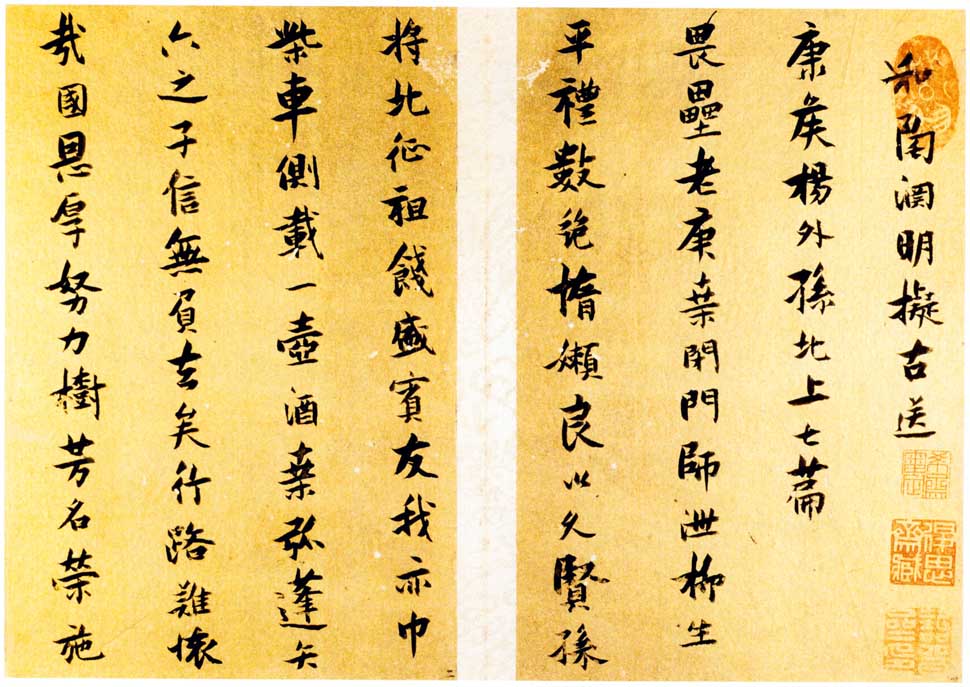 和陶淵明擬古送
康侯楊外孫北上七篇
畏壘老庚桑閉門師泄柳生
平禮數絕惰嬾良以久賢孫
將北征祖餞盛賓友我亦巾
柴車側載一壺酒桑弧蓬矢
六之子信無負去矣行路難懷
哉國恩厚努力樹芳名榮施
二